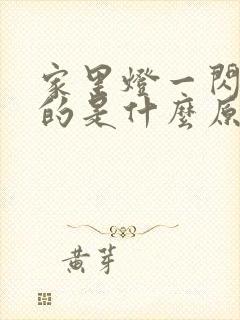 家里燈一閃
的是什麽原
黄芽